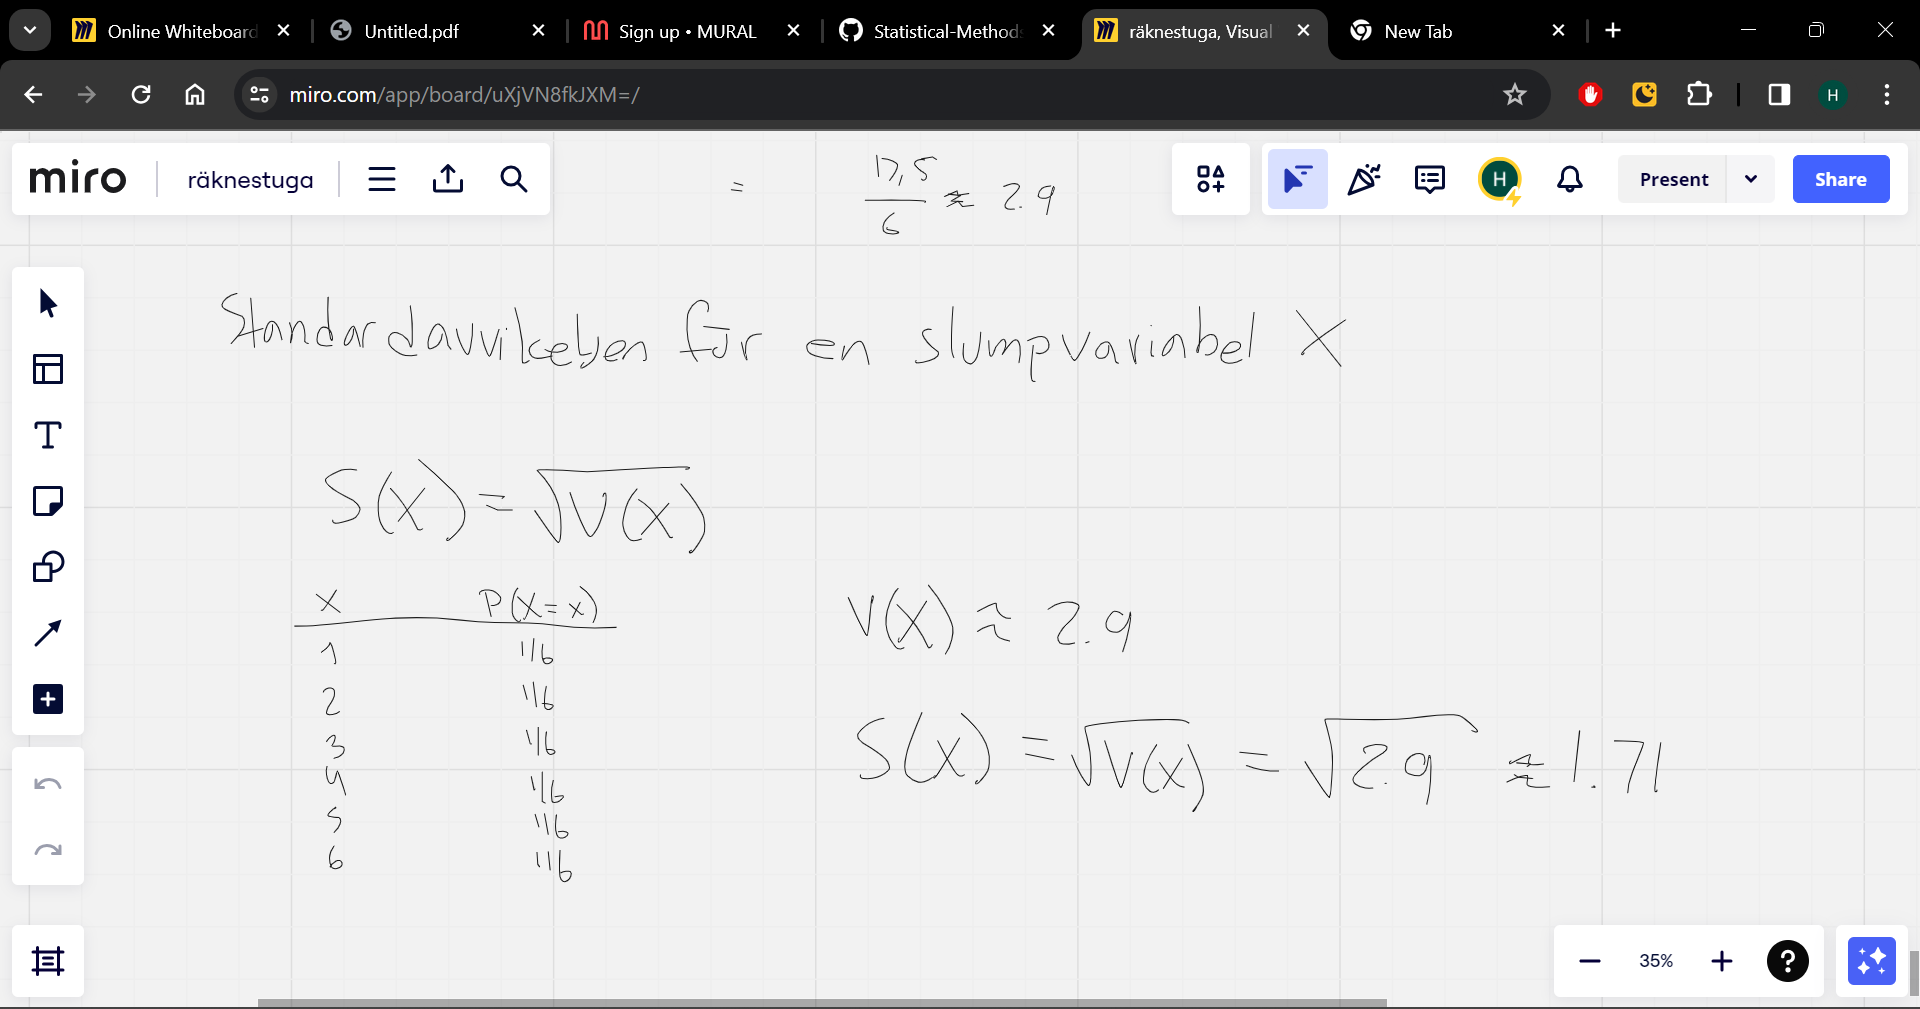 Online Whiteboard
Untitled.pdf
Sign up • MURAL
Statistical-Methods
räknestuga, Visual
New Tab
miro.com/app/board/uXjVN8fkJXM=/
H
miro
räknestuga
H
Present
Share
= 17,5/6 ≈ 2.9
Standardavvikelsen för en slumpvariabel X
S(X) = √V(X)
x P(X=x)
1 1/6
2 1/6
3 1/6
4 1/6
5 1/6
6 1/6
V(X) ≈ 2.9
S(X) = √V(X) = √2.9 ≈ 1.71
35%
?